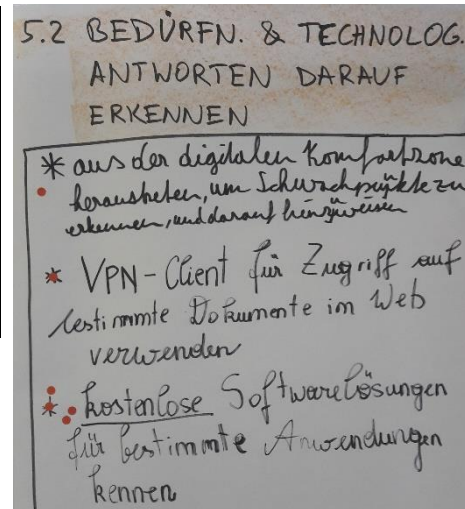 5.2 BEDÜRFN. & TECHNOLOG.
ANTWORTEN DARAUF
ERKENNEN
* aus der digitalen Komfortzone
heraustreten, um Schwachpunkte zu
erkennen, und darauf hinzuweisen
* VPN-Client für Zugriff auf
bestimmte Dokumente im Web
verwenden
* kostenlose Softwarelösungen
für bestimmte Anwendungen
kennen